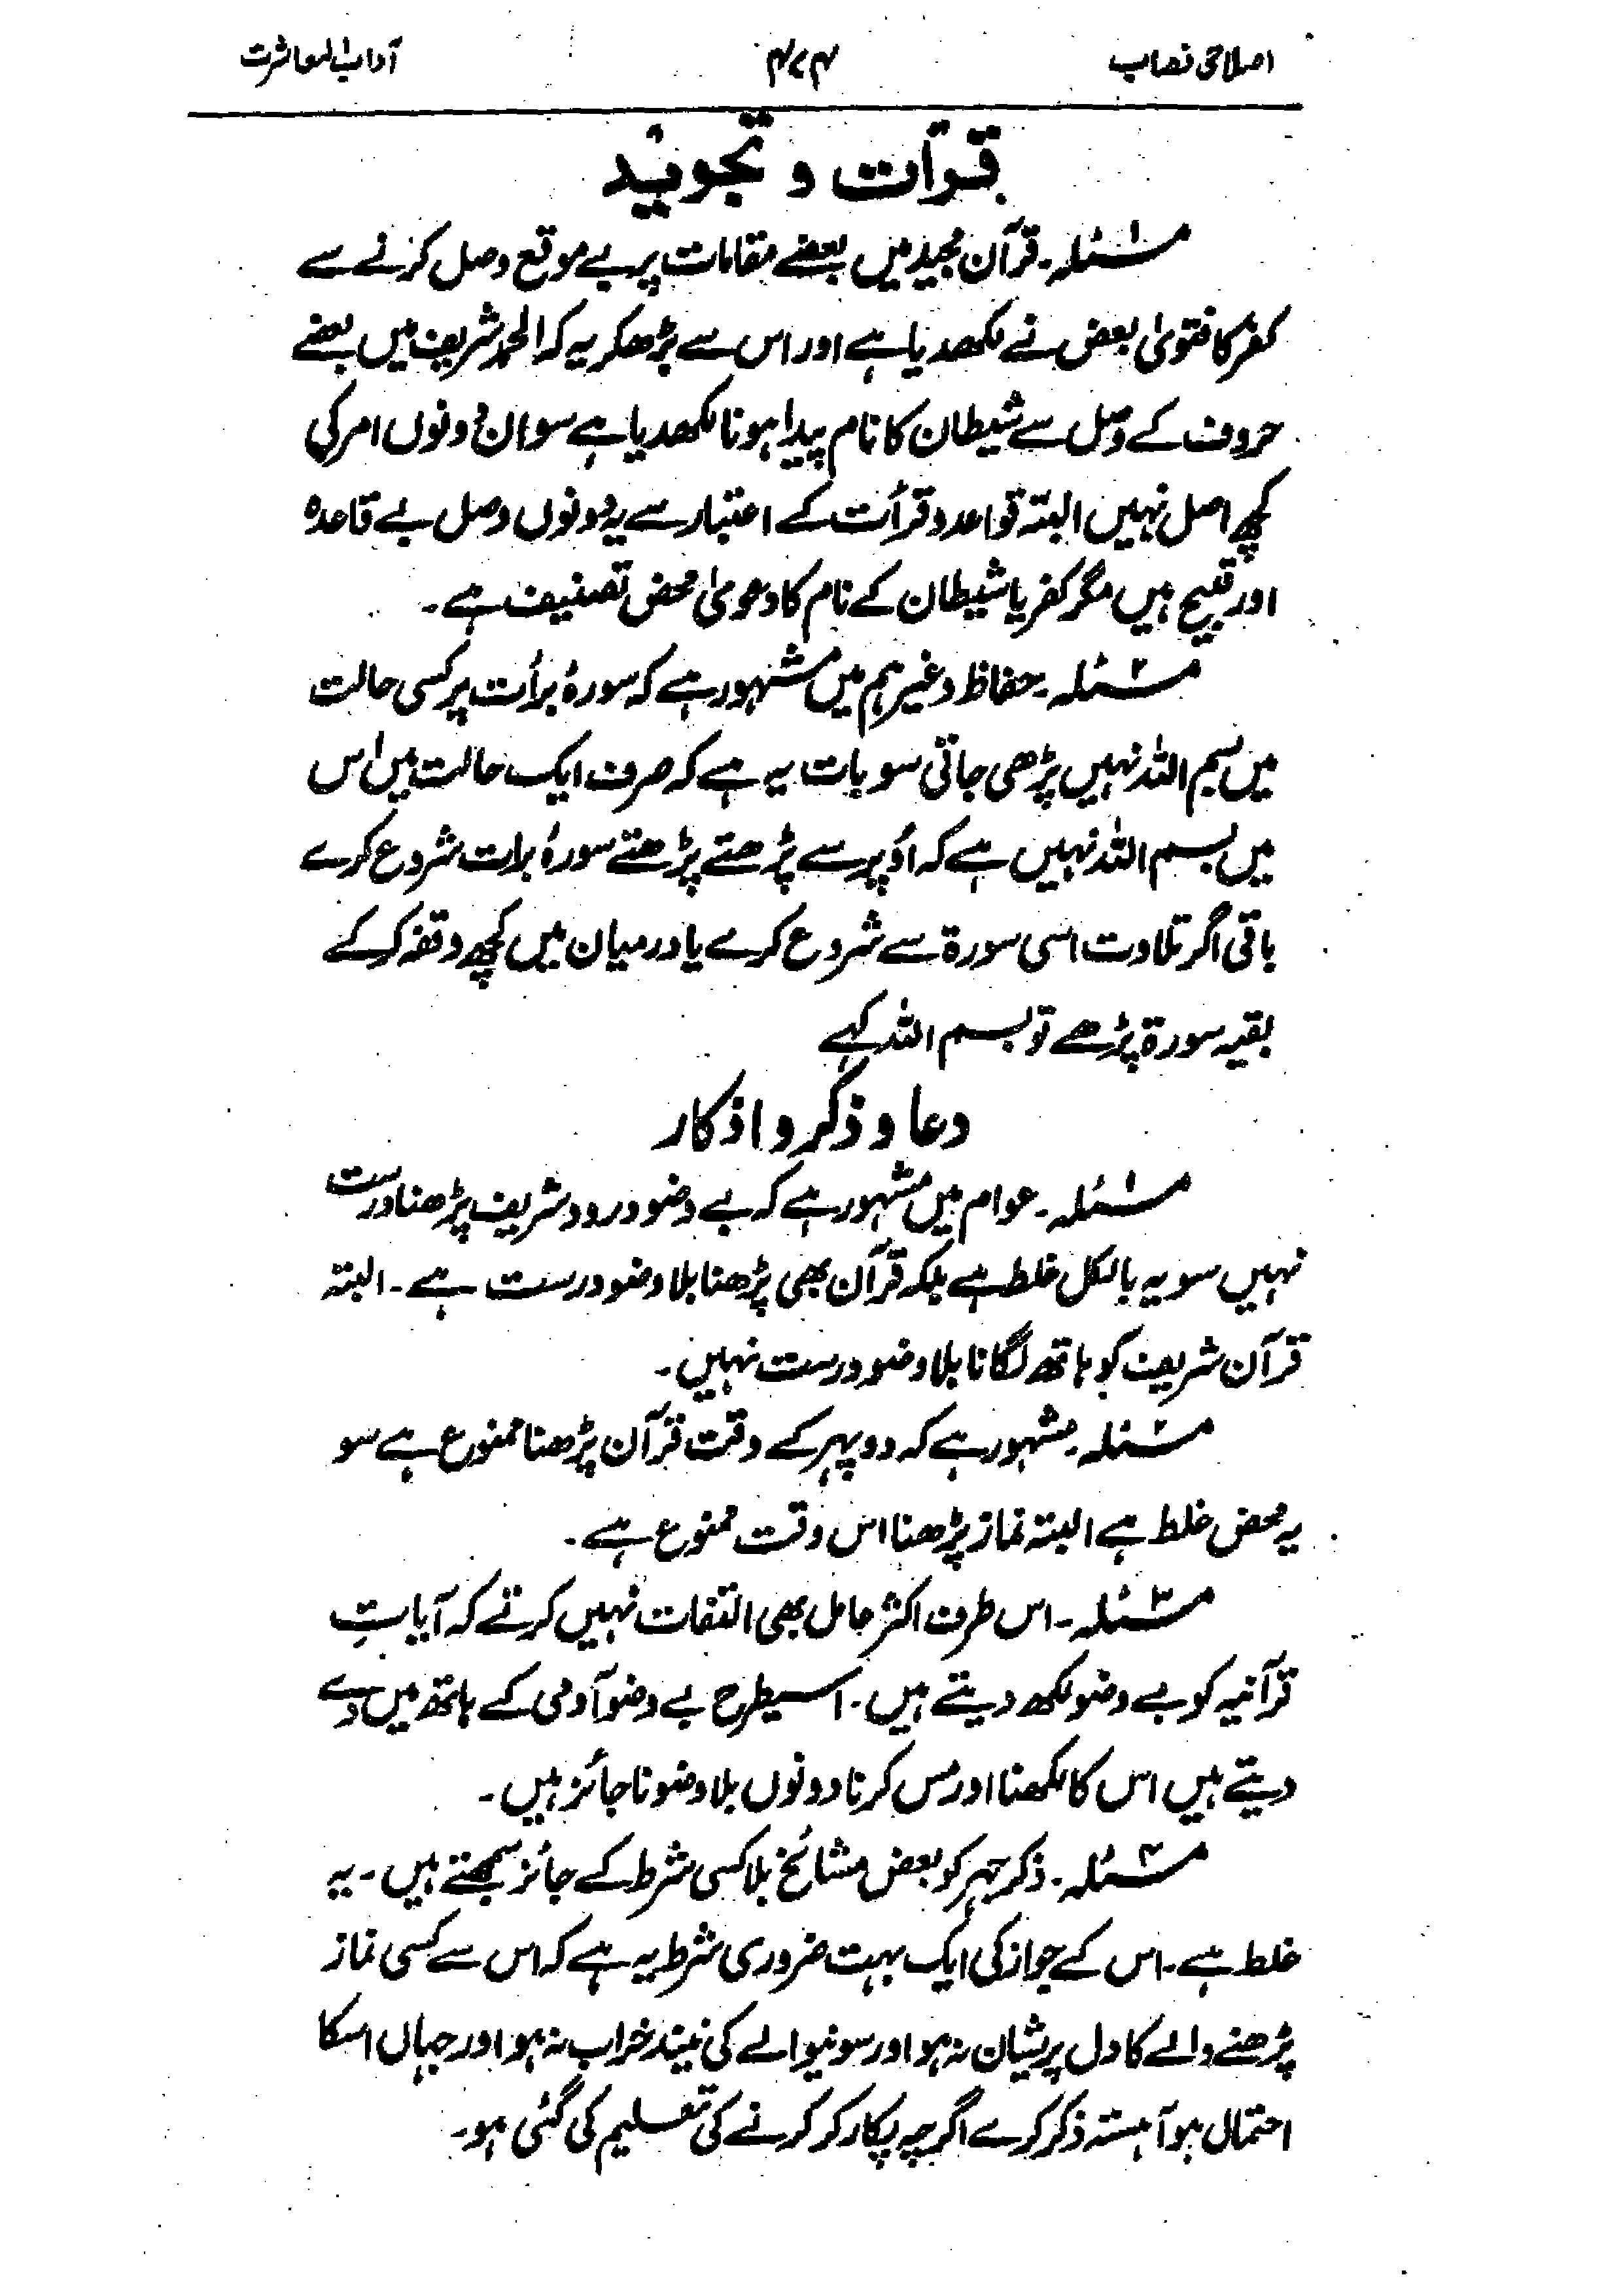 اصلاحی نصاب ۴۷۴ آداب المعاشرت
قرأت و تجوید
مسئلہ۱۔ قرآن مجید میں بعضے مقامات پر بے موقع وصل کرنے سے
کفر کا فتویٰ بعض نے لکھدیا ہے اور اس سے بڑھکر یہ کہ الحمد شریف میں بعضے
حروف کے وصل سے شیطان کا نام پیدا ہونا لکھدیا ہے سو ان دونوں امر کی
کچھ اصل نہیں البتہ قواعد و قرأت کے اعتبار سے یہ دونوں وصل بے قاعدہ
اور قبیح ہیں مگر کفر یا شیطان کے نام کا دعویٰ محض تصنیف ہے۔
مسئلہ۲۔ حفاظ وغیرہم میں مشہور ہے کہ سورۂ برأت پر کسی حالت
میں بسم اللہ نہیں پڑھی جاتی سو بات یہ ہے کہ صرف ایک حالت میں اس
میں بسم اللہ نہیں ہے کہ اُوپر سے پڑھتے پڑھتے سورۂ برات شروع کرے
باقی اگر تلاوت اسی سورۃ سے شروع کرے یا درمیان میں کچھ وقفہ کر کے
بقیہ سورۃ پڑھے تو بسم اللہ کہے
دعا و ذکر و اذکار
مسئلہ۱۔ عوام میں مشہور ہے کہ بے وضو درود شریف پڑھنا درست
نہیں سو یہ بالکل غلط ہے بلکہ قرآن بھی پڑھنا بلا وضو درست ہے۔ البتہ
قرآن شریف کو ہاتھ لگانا بلا وضو درست نہیں۔
مسئلہ۲۔ مشہور ہے کہ دوپہر کے وقت قرآن پڑھنا ممنوع ہے سو
یہ محض غلط ہے البتہ نماز پڑھنا اس وقت ممنوع ہے۔
مسئلہ۳۔ اس طرف اکثر عامل بھی التفات نہیں کرتے کہ آیاتِ
قرآنیہ کو بے وضو لکھ دیتے ہیں۔ اسیطرح بے وضو آدمی کے ہاتھ میں دے
دیتے ہیں اس کا لکھنا اور مس کرنا دونوں بلا وضو ناجائز ہیں۔
مسئلہ۴۔ ذکر جہر کو بعض مشائخ بلا کسی شرط کے جائز سمجھتے ہیں۔ یہ
غلط ہے۔ اس کے جواز کی ایک بہت ضروری شرط یہ ہے کہ اس سے کسی نماز
پڑھنے والے کا دل پریشان نہ ہو اور سونیوالے کی نیند خراب نہ ہو اور جہاں اسکا
احتمال ہو آہستہ ذکر کرے اگرچہ پکار کر کرنے کی تعلیم کی گئی ہو۔